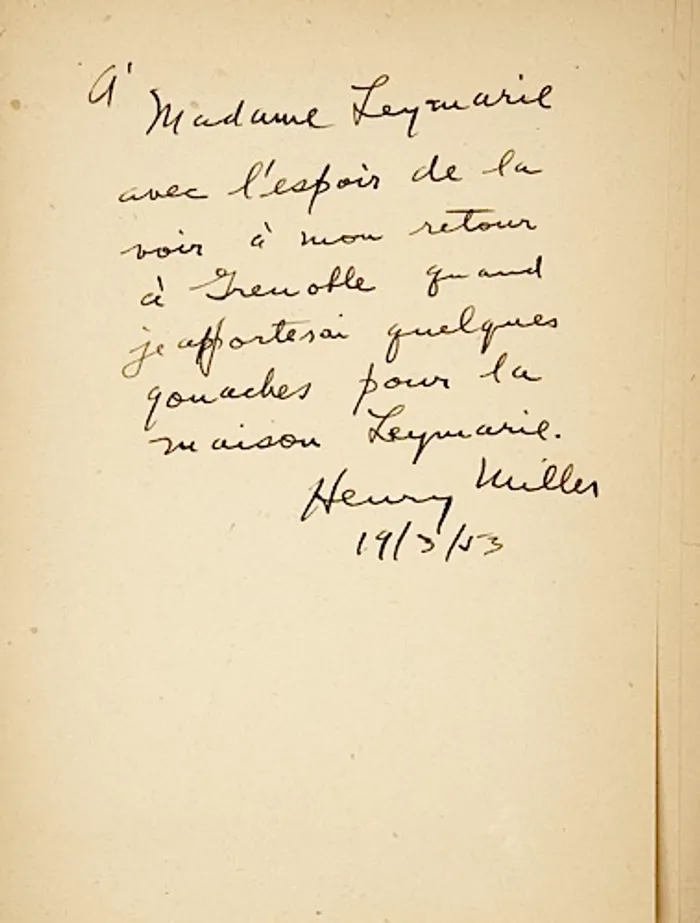 A' Madame Leymarie
avec l'espoir de la
voir à mon retour
à Grenoble quand
je apporterai quelques
gouaches pour la
maison Leymarie.
Henry Miller
19/3/53